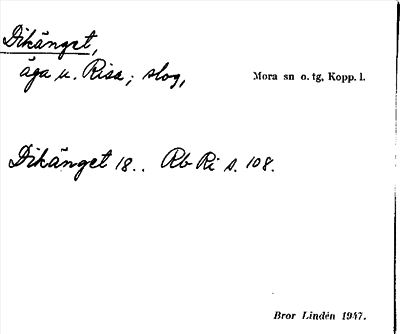 Dikänget,
äga u. Risa; slog,
Mora sn o. tg, Kopp. l.
Dikänget 18.. Rb Ri s. 108.
Bror Lindén 1947.